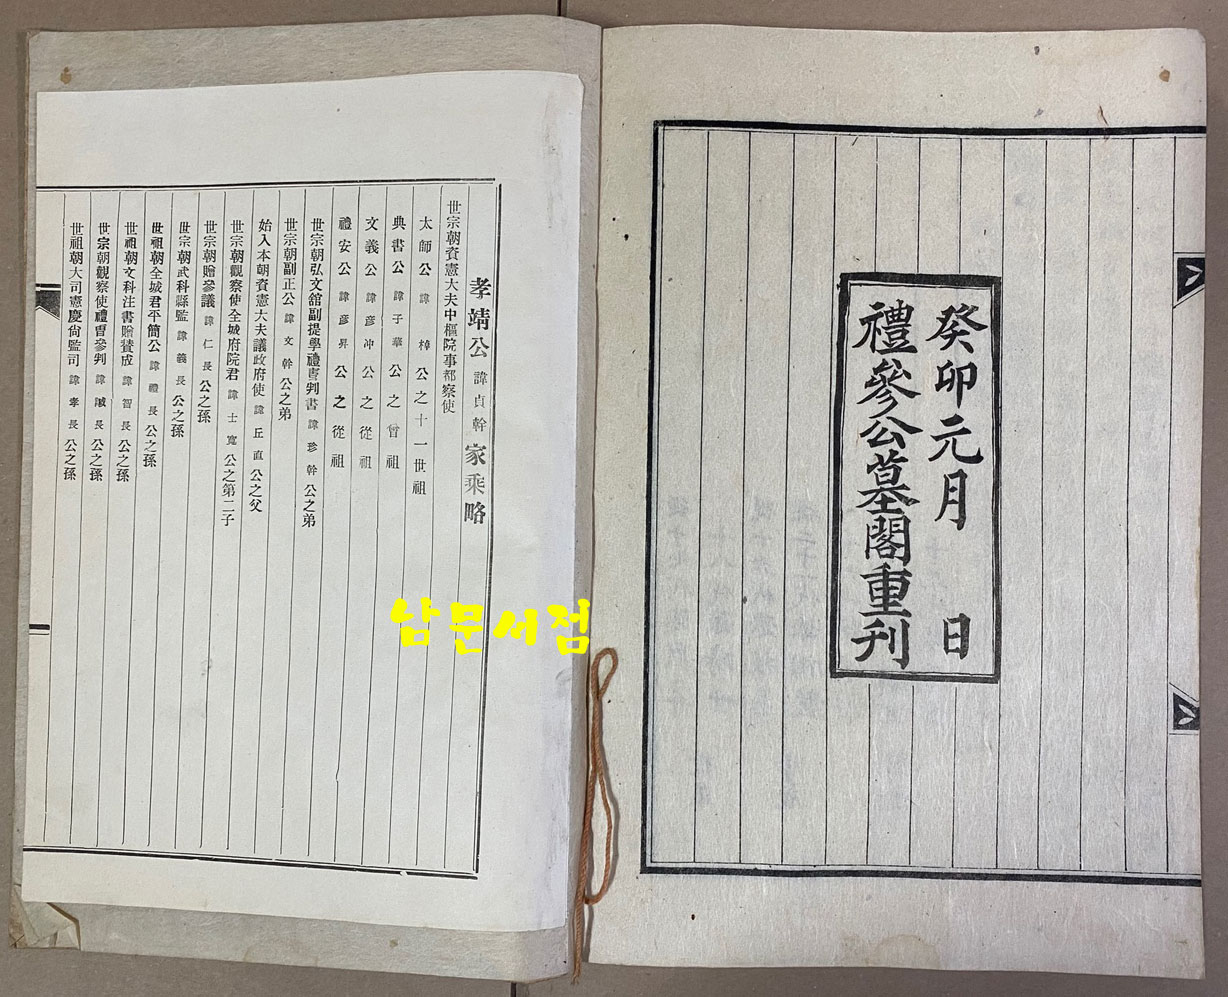 癸卯元月 日
禮參公墓閣重刊
孝靖公 諱貞幹 家乘略
世宗朝資憲大夫中樞院事都察使
太師公 諱樟 公之十一世祖
典書公 諱子華 公之曾祖
文義公 諱彦冲 公之從祖
禮安公 諱彦昇 公之從祖
世宗朝弘文舘副提學禮曹判書 諱珍幹 公之弟
世宗朝副正公 諱文幹 公之弟
始入本朝資憲大夫議政府使 諱丘直 公之父
世宗朝觀察使全城府院君 諱士寬 公之第二子
世宗朝贈參議 諱仁長 公之孫
世宗朝武科縣監 諱義長 公之孫
世祖朝全城君平簡公 諱禮長 公之孫
世祖朝文科注書贈賛成 諱智長 公之孫
世宗朝觀察使禮曹參判 諱諴長 公之孫
世祖朝大司憲慶尙監司 諱孝長 公之孫
남문서점